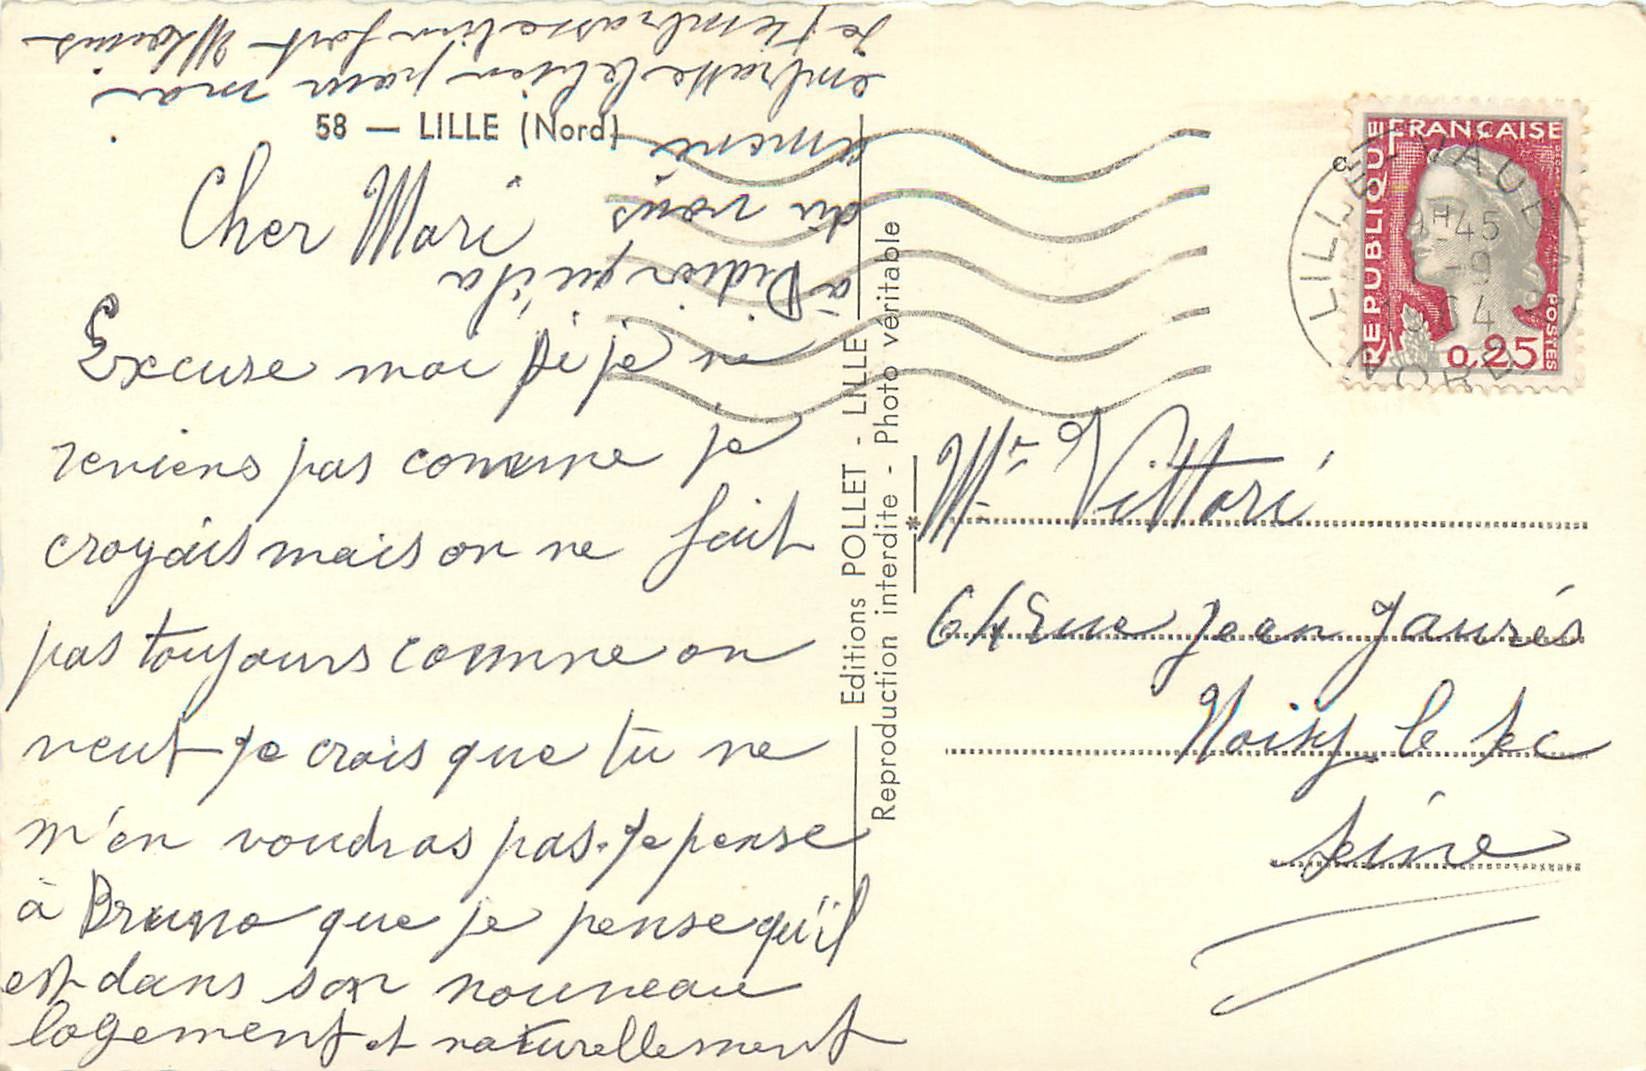 58 — LILLE (Nord)
Cher Mari
Excuse moi si je ne
reviens pas comme je
croyais mais on ne fait
pas toujours comme on
veut je crois que tu ne
m'en voudras pas. Je pense
à Bruno que je pense qu'il
est dans son nouveau
logement et naturellement
à Didier qu'il a
dû vous
embrasse le bien pour moi
Je t'embrasse bien fort
Editions POLLET - LILLE
Reproduction interdite - Photo véritable
REPUBLIQUE FRANÇAISE
POSTES
0,25
LILLE
45
-9
Mr Vittori
64 Rue Jean Jaurés
Noisy le Sec
Seine